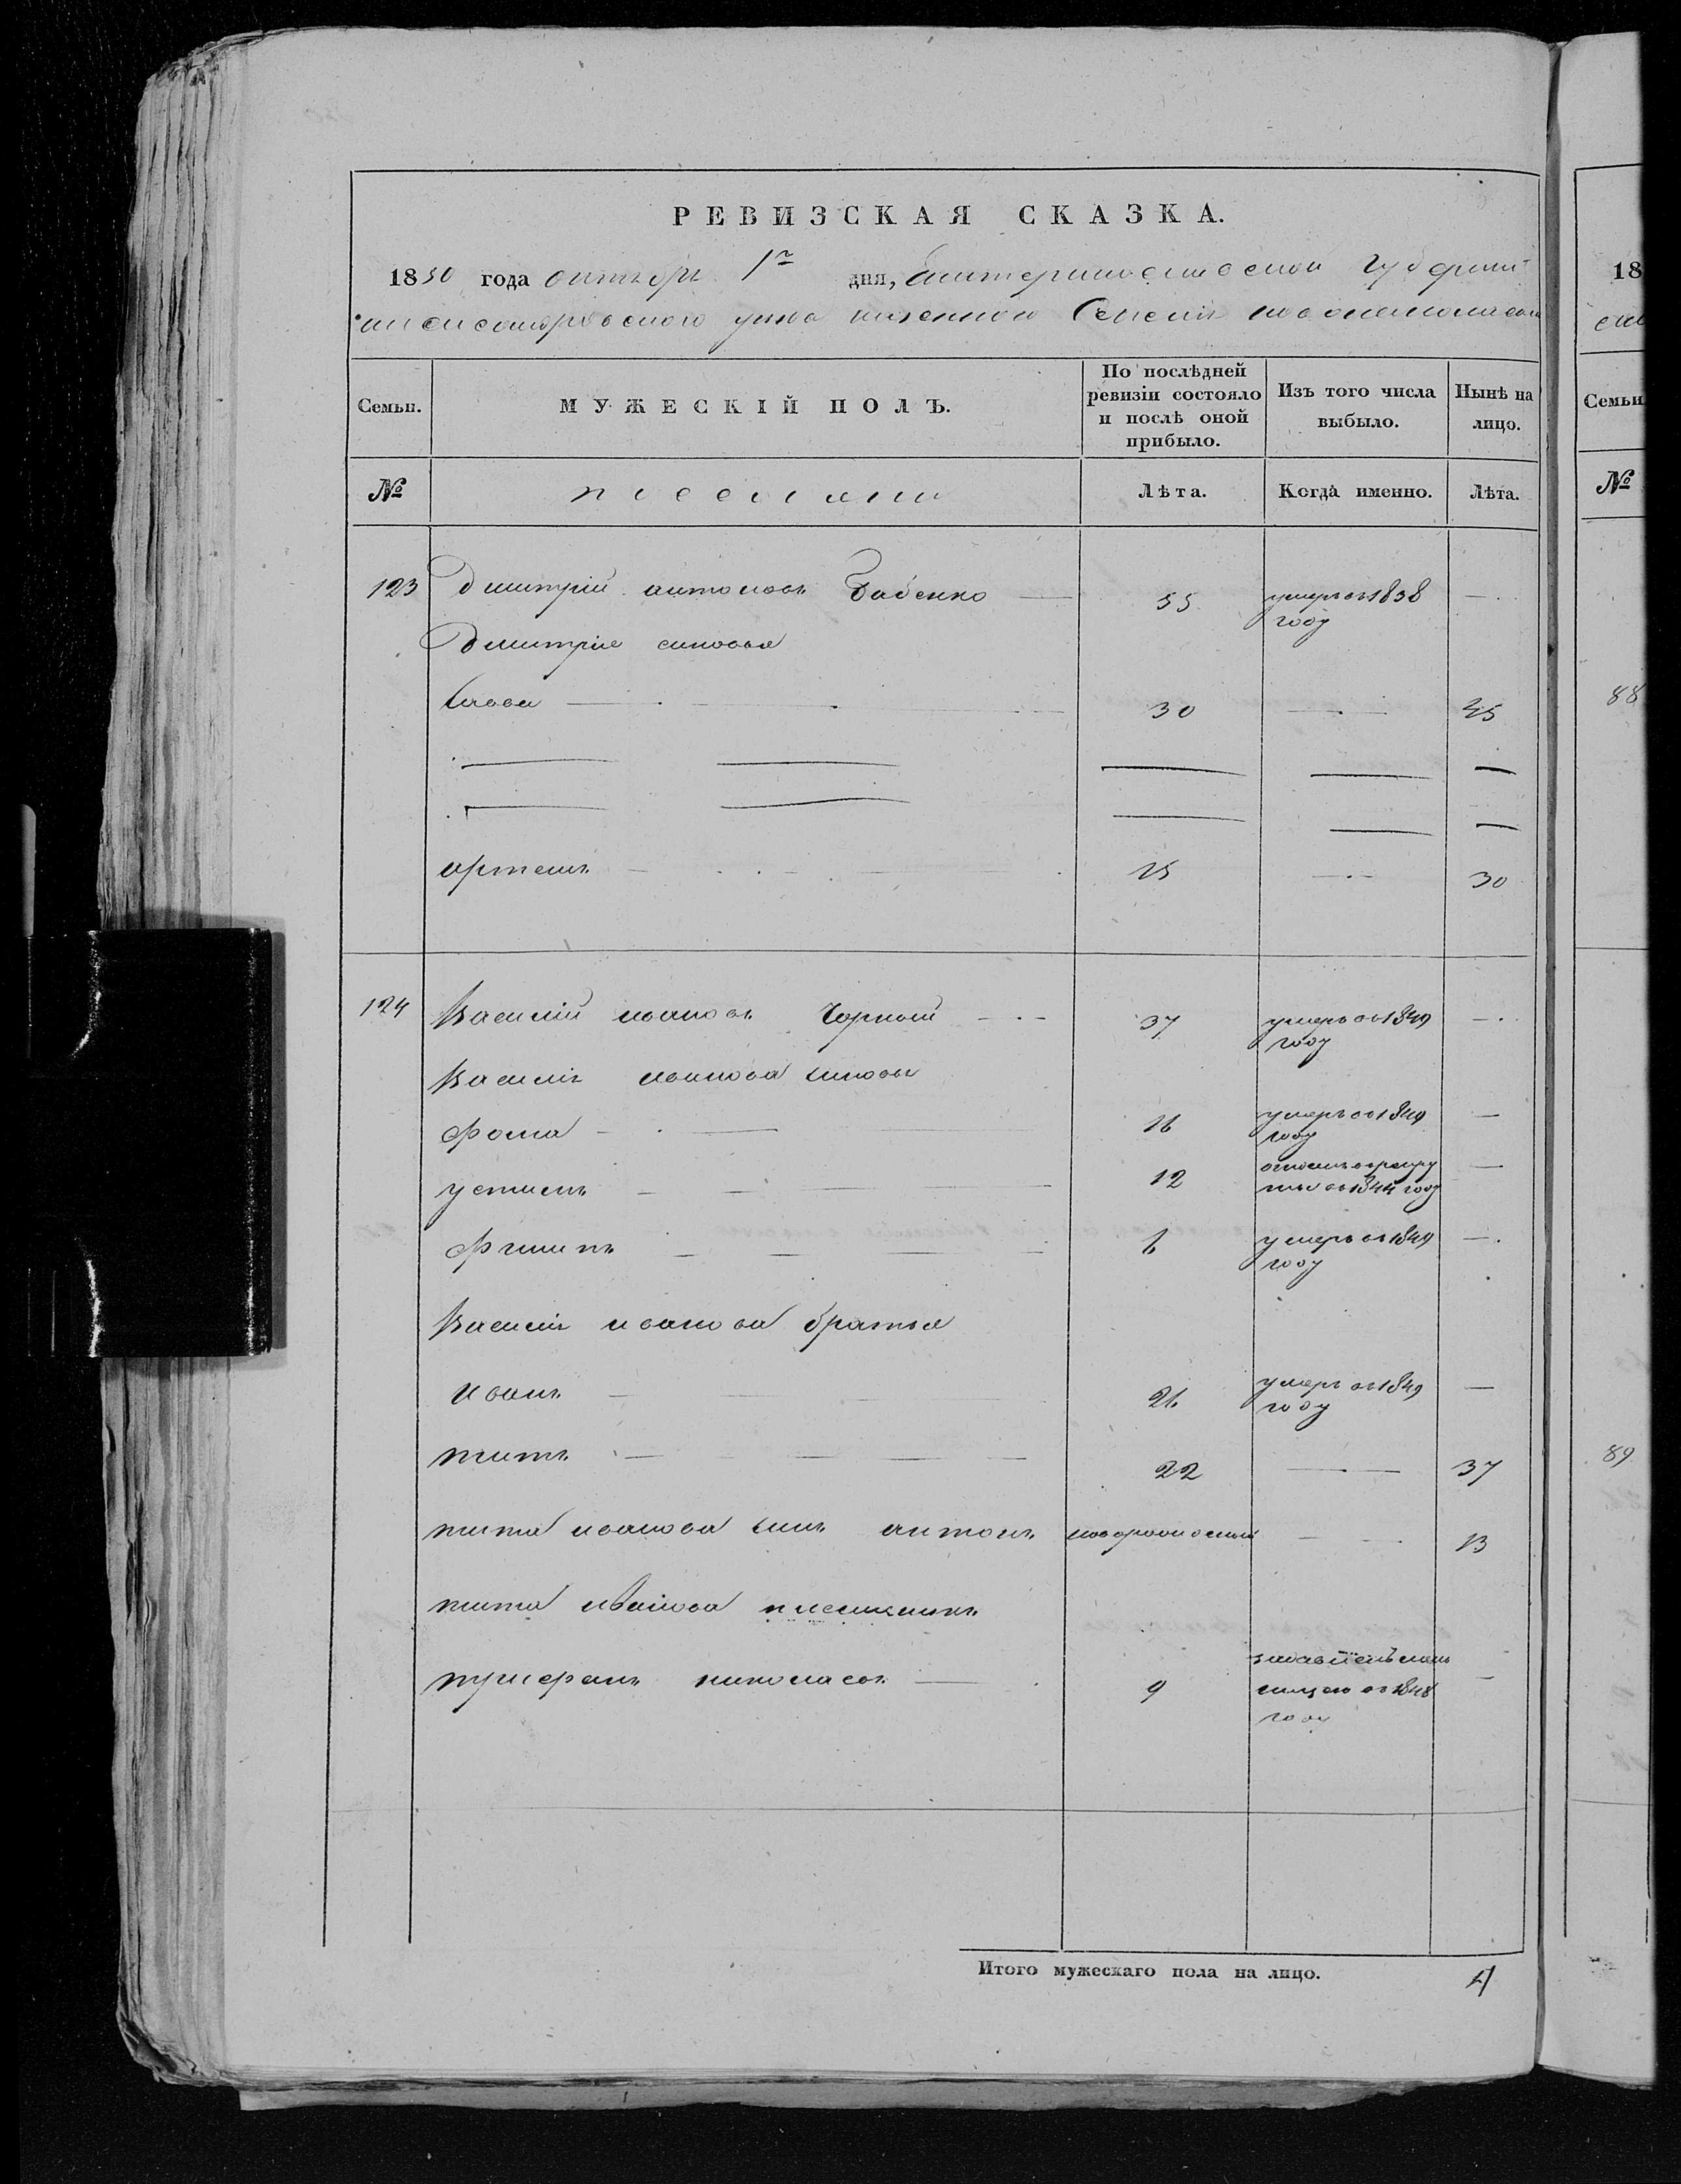 РЕВИЗСКАЯ СКАЗКА.
1850 года октября 1го дня, Екатеринославской Губернии
Александровского уезда казенного Селения
Семьи. МУЖЕСКІЙ ПОЛЪ. По послѣдней ревизіи состояло и послѣ оной прибыло. Изъ того числа выбыло. Нынѣ на лицо.
№ Лѣта. Когда именно. Лѣта.
123 Дмитрий антоновъ Бабенко 55 умеръ въ 1838 году
Дмитрия сыновья
Савва 30 45
артемъ 15 30
124 Василий ивановъ Чорный 37 умеръ въ 1849 году
Василия иванова сыновья
фома 16 умеръ въ 1849 году
устимъ 12 въ 1844 году
филипъ 6 умеръ въ 1849 году
Василия иванова братья
иванъ 26 умеръ въ 1849 году
титъ 22 37
тита иванова сынъ антонъ новорожденный 13
тита иванова племянникъ
9 въ 1848 году
Итого мужескаго пола на лицо. 4
18
Семьи
№
88
89